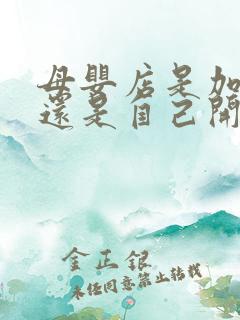 母嬰店是加
還是自己開
金正銀
未经同意禁止转载